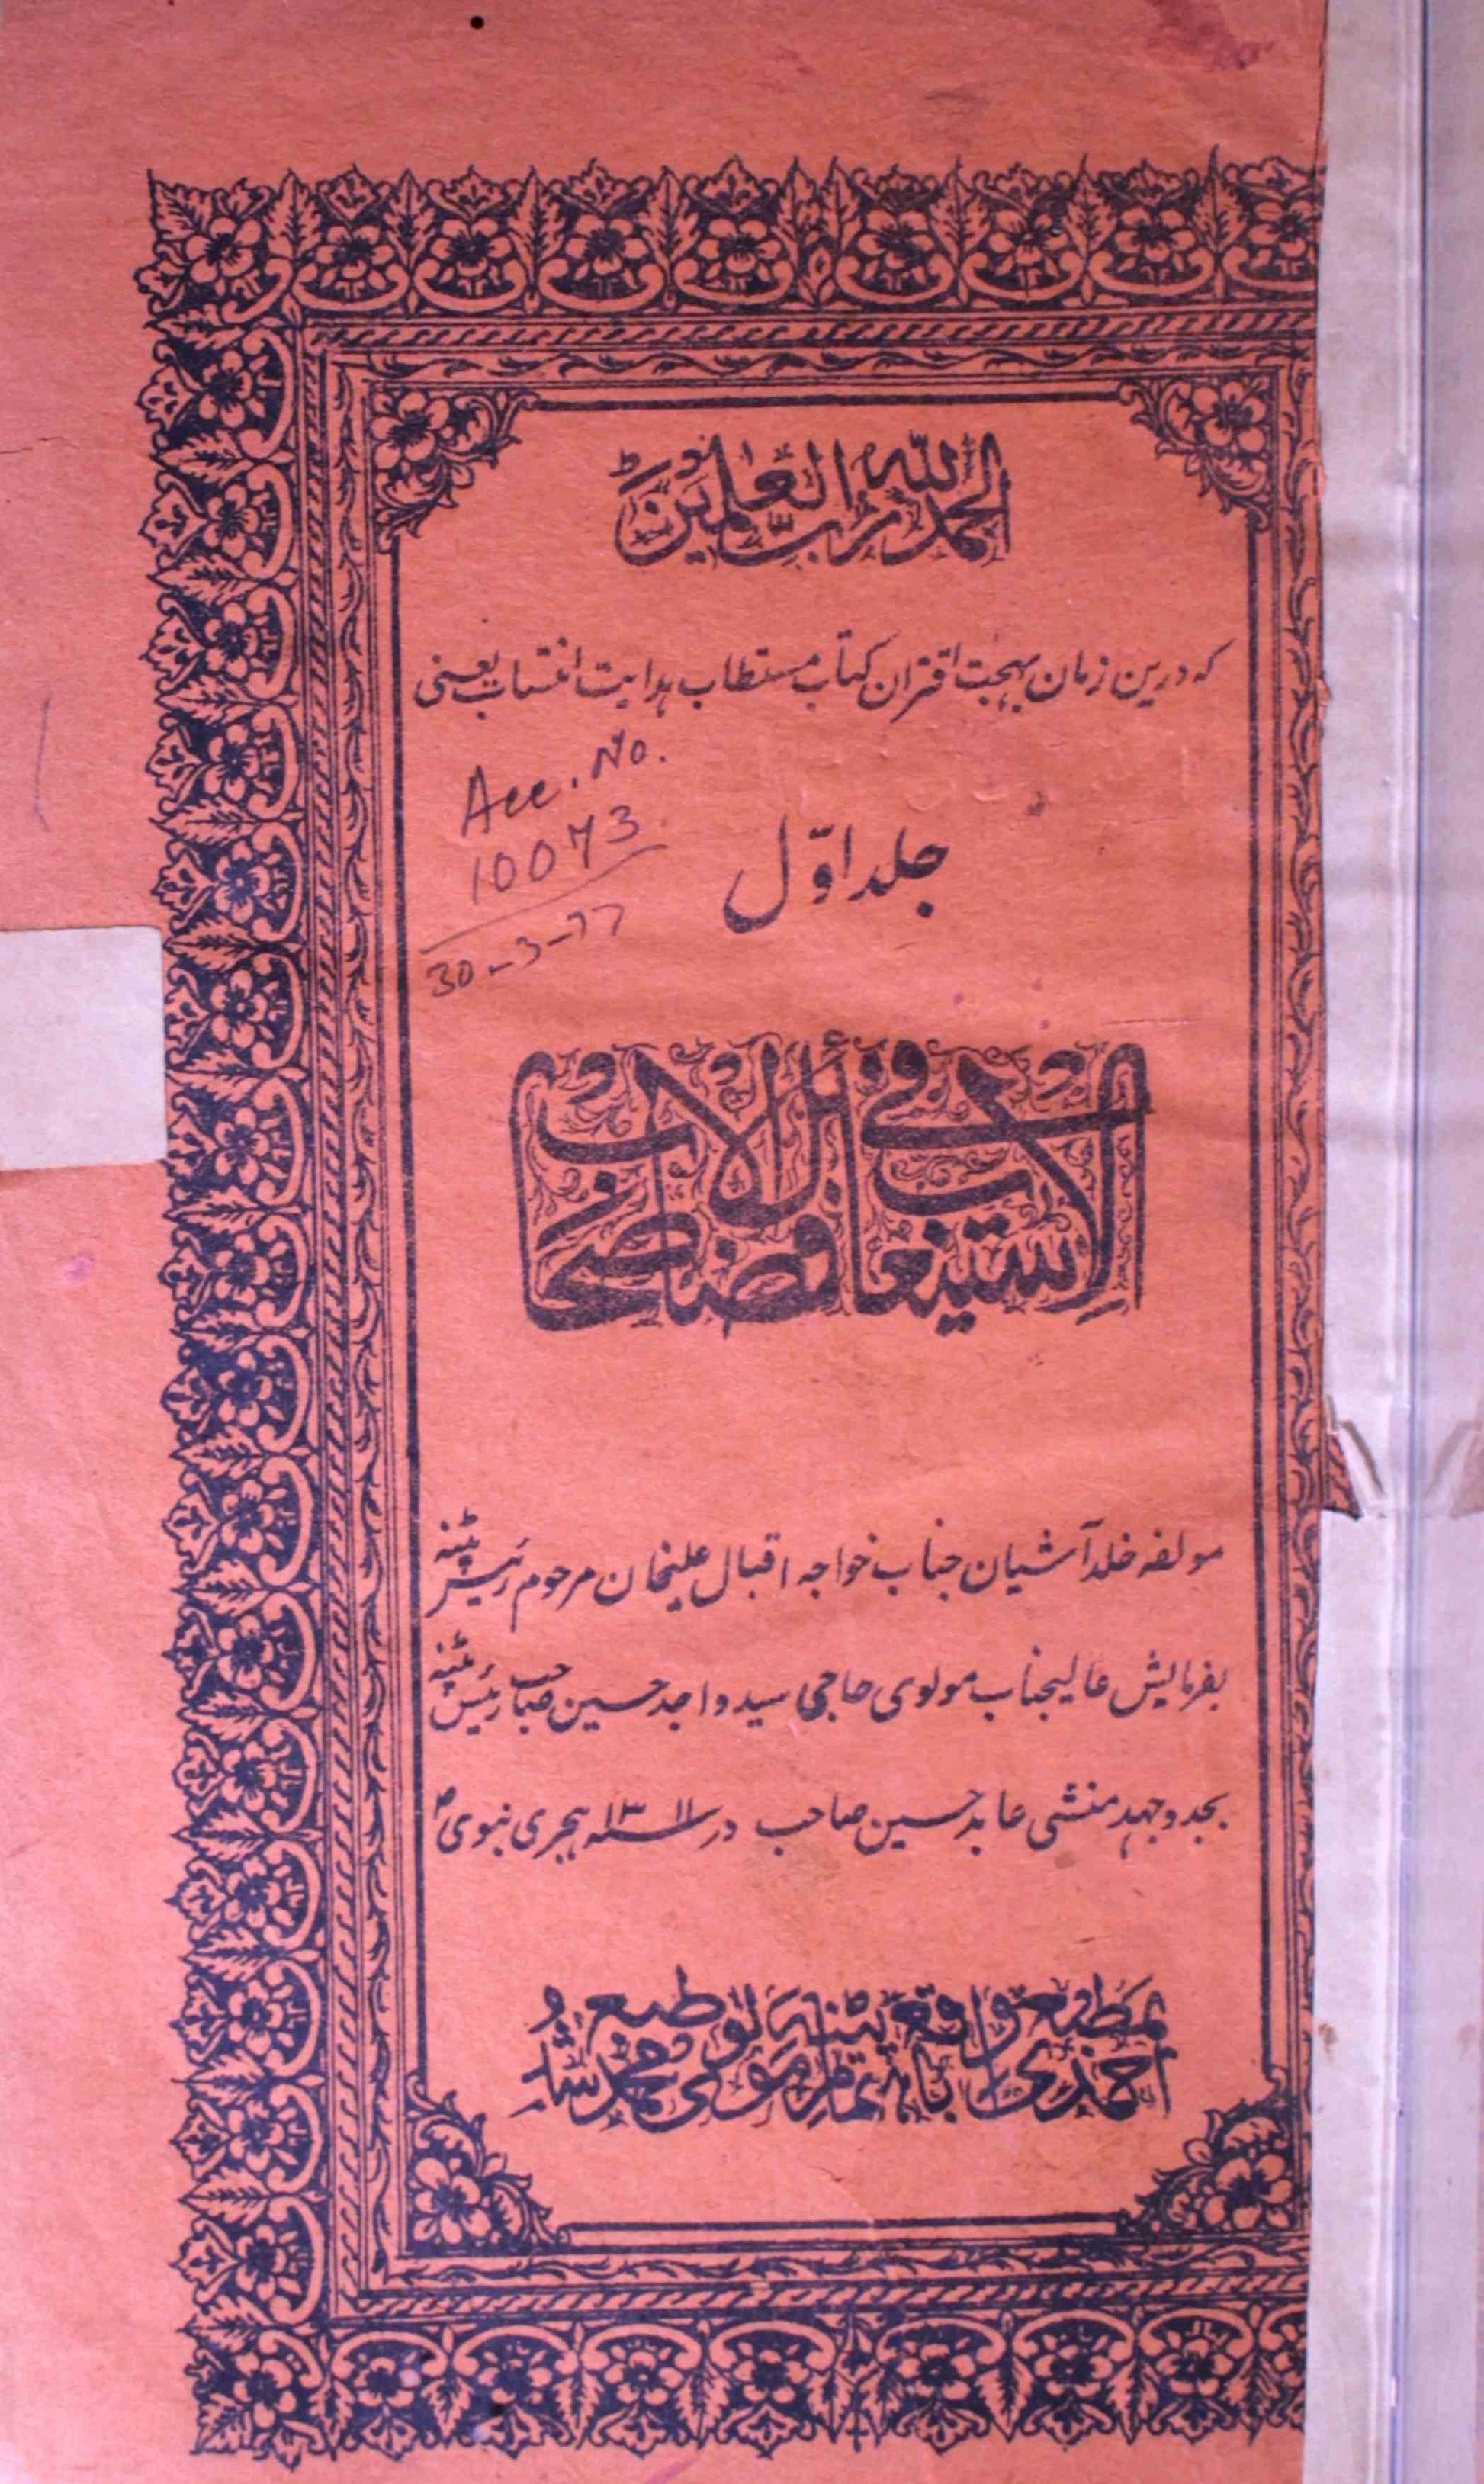 الحمد لله رب العلمین
که درین زمان بهجت اقتران کتاب مستطاب هدایت انتساب یعنی
Acc. No.
10073
30-3-77
جلد اوّل
الاستیعاب فی
مولفه خلد آشیان جناب خواجه اقبال علیخان مرحوم رئیس پٹنه
بفرمایش عالیجناب مولوی حاجی سید واجد حسین صاحب رئیس پٹنه
بجد و جهد منشی عابد حسین صاحب در سنه ۱۳۱۱ هجری نبوی ص
بمطبع واقع پٹنه طبع
احمدی باهتمام مولوی محمد